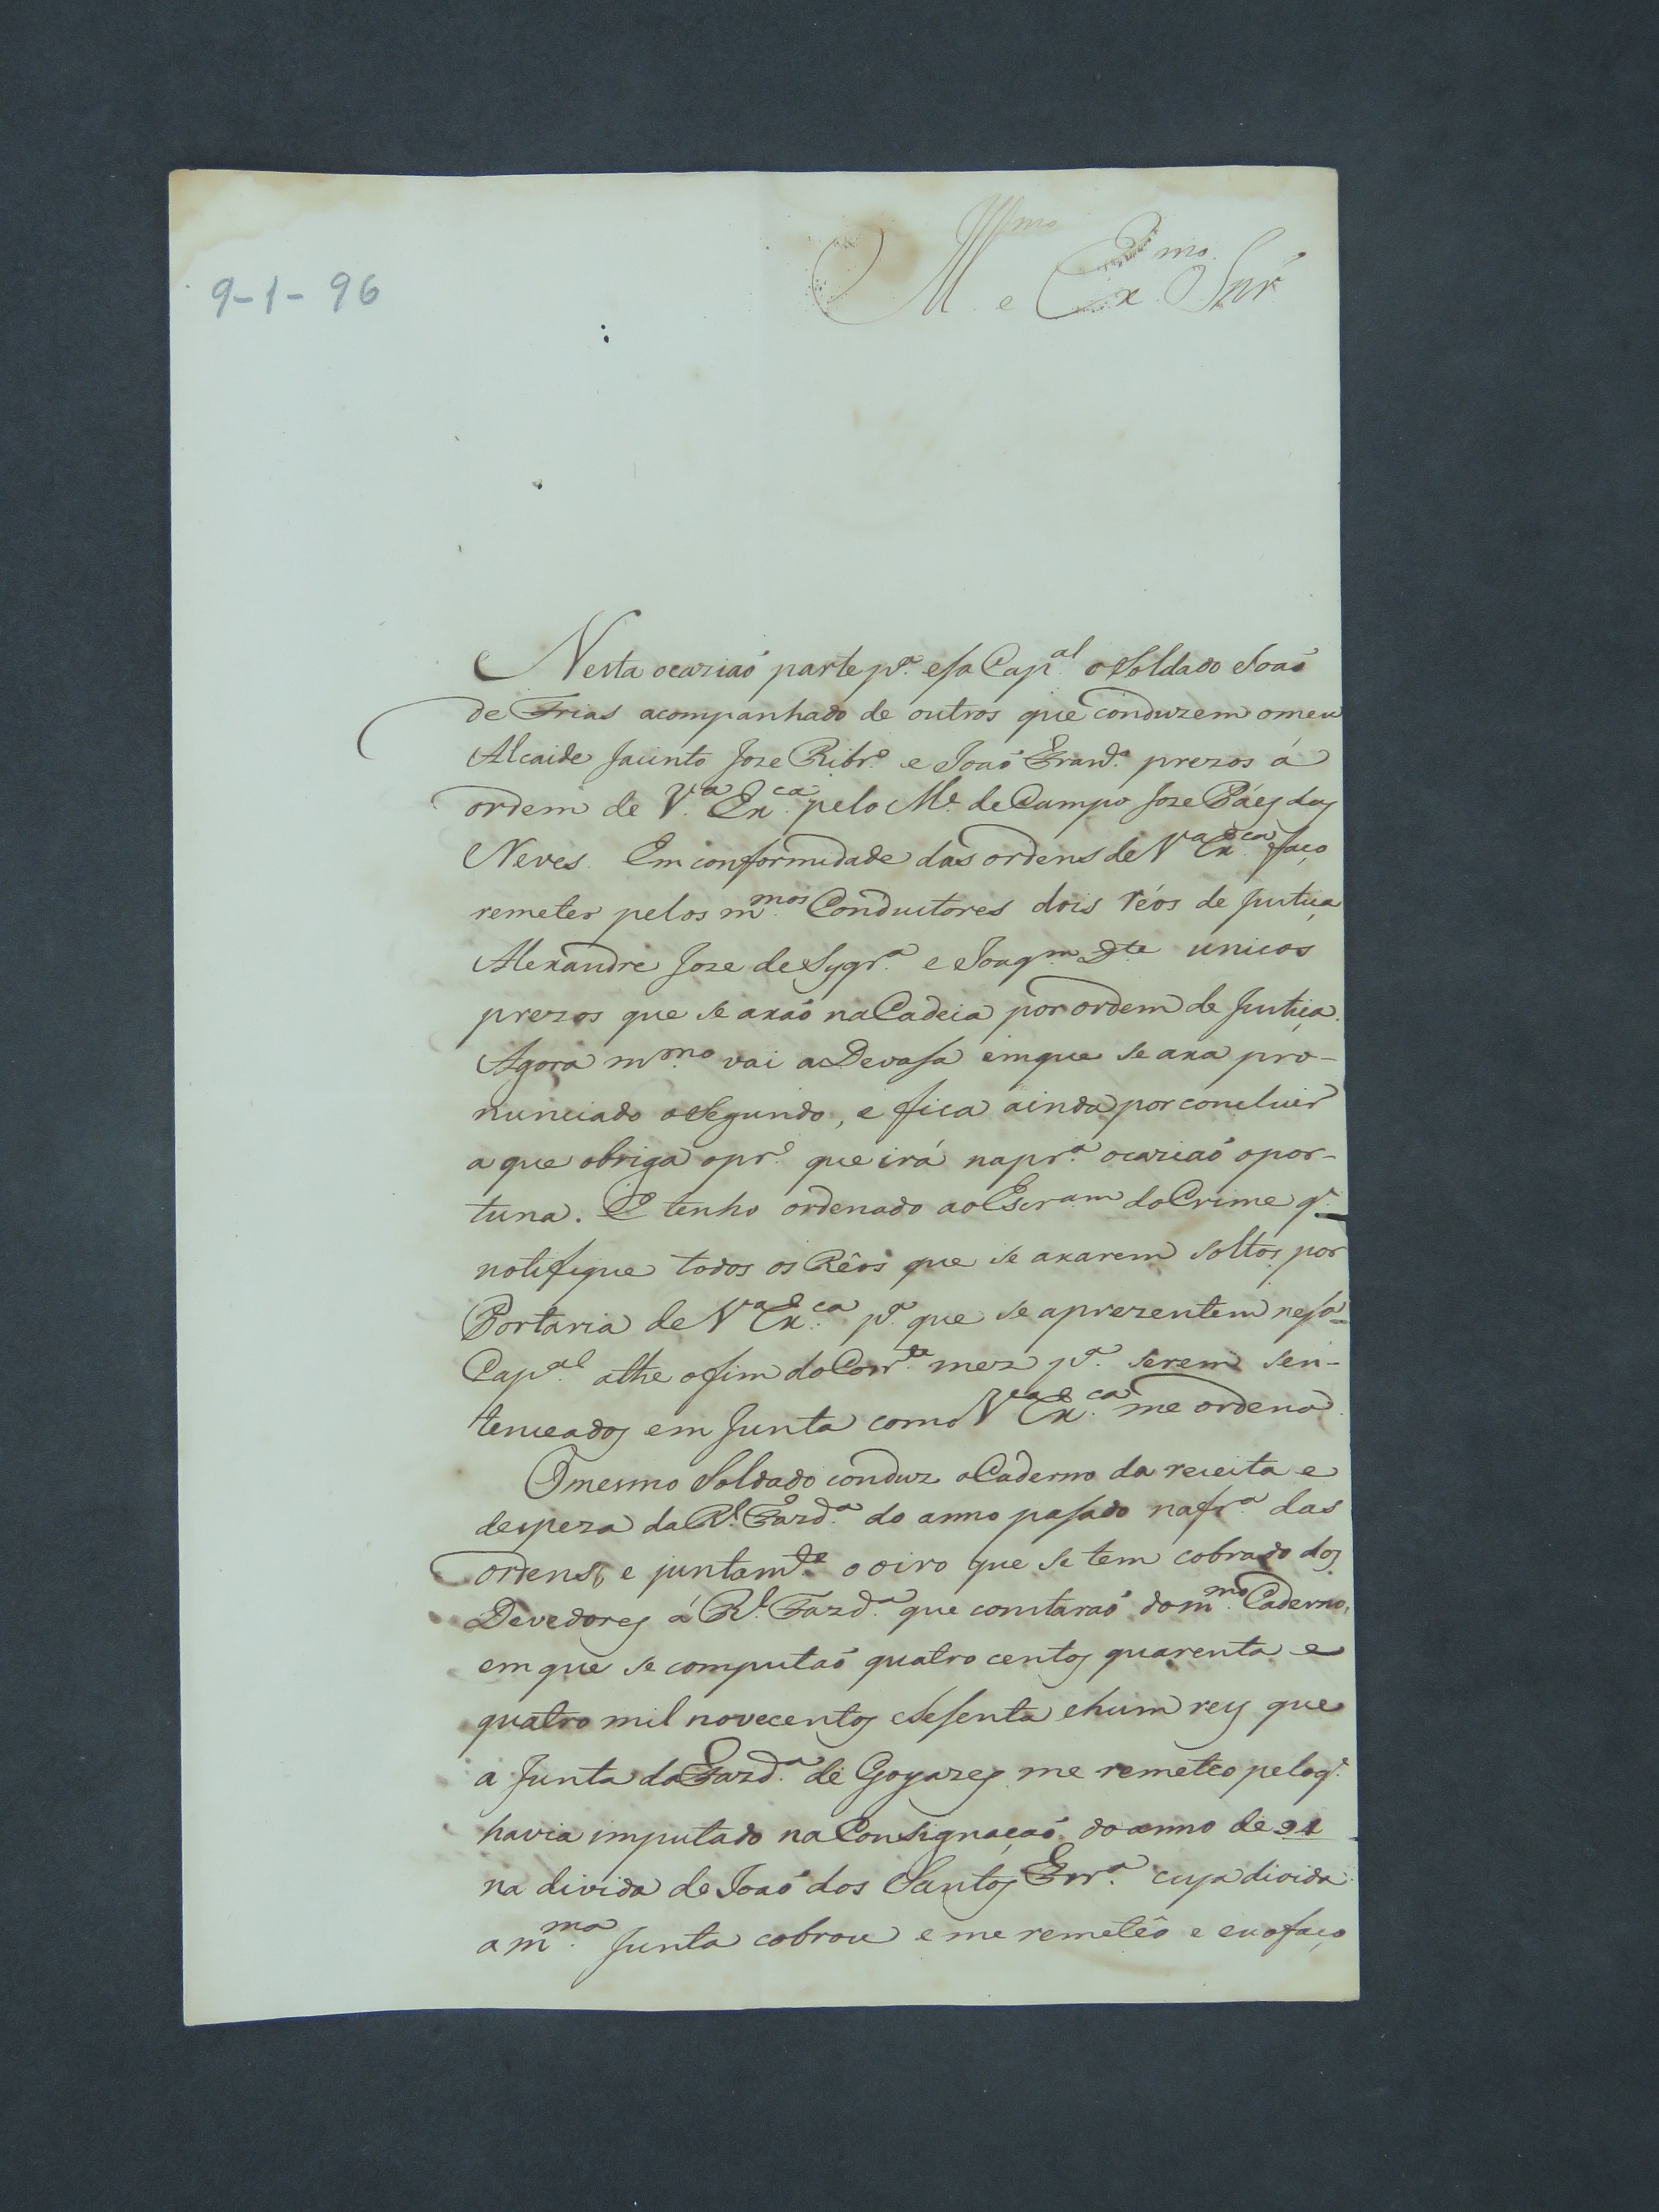 9-1-96
Ill.mo e Ex.mo Snr̃
Nesta ocaziaõ parte p.ª esa Cap.al o Soldado Joaõ
de Frias acompanhado de outros que conduzem o meu
Alcaide Jacinto Joze Ribr.º e Joaõ prezos á
ordem de V.ª Ex.ca pelo M.e de Campo Joze Páes das
Neves. Em conformidade das ordens de V.ª Ex.ca faço
remeter pelos m.mos Conductores dois réos de Justiça
Alexandre Joze de Syqr.ª e Joaq.m D.te unicos
prezos que se axaõ na Cadeia por ordem de Justiça.
Agora m.mo vai a Devasa em que se axa pro-
nunciado o segundo, e fica ainda por concluir
a que obriga o pr.º que irá na pr.ª ocaziaõ opor-
tuna. E tenho ordenado ao Escram do Crime q.
notifique todos os Rêos que se axarem soltos por
Portaria de V.ª Ex.ca p.ª que se aprezentem nesa
Cap.al athe o fim do Corr.te mez p.ª serem sen-
tenceados em Junta como V.ª Ex.ca me ordena.
O mesmo Soldado conduz o Caderno da receita e
despeza da R.l Fazd.ª do anno pasado na fr.ª das
ordens, e juntam.te o oiro que se tem cobrado dos
Devedores á R.l Fazd.ª que constaraõ do m.mo Caderno,
em que se computaõ quatro centos quarenta e
quatro mil novecentos e sesenta e hum reis que
a Junta da Fazd.ª de Goyazes me remeteo pelo q.
havia imputado na Consignaçaõ do anno de 91
na divida de Joaõ dos Santos Ferr.ª cuja divida
a m.ma Junta cobrou e me remetêo e eu o faço